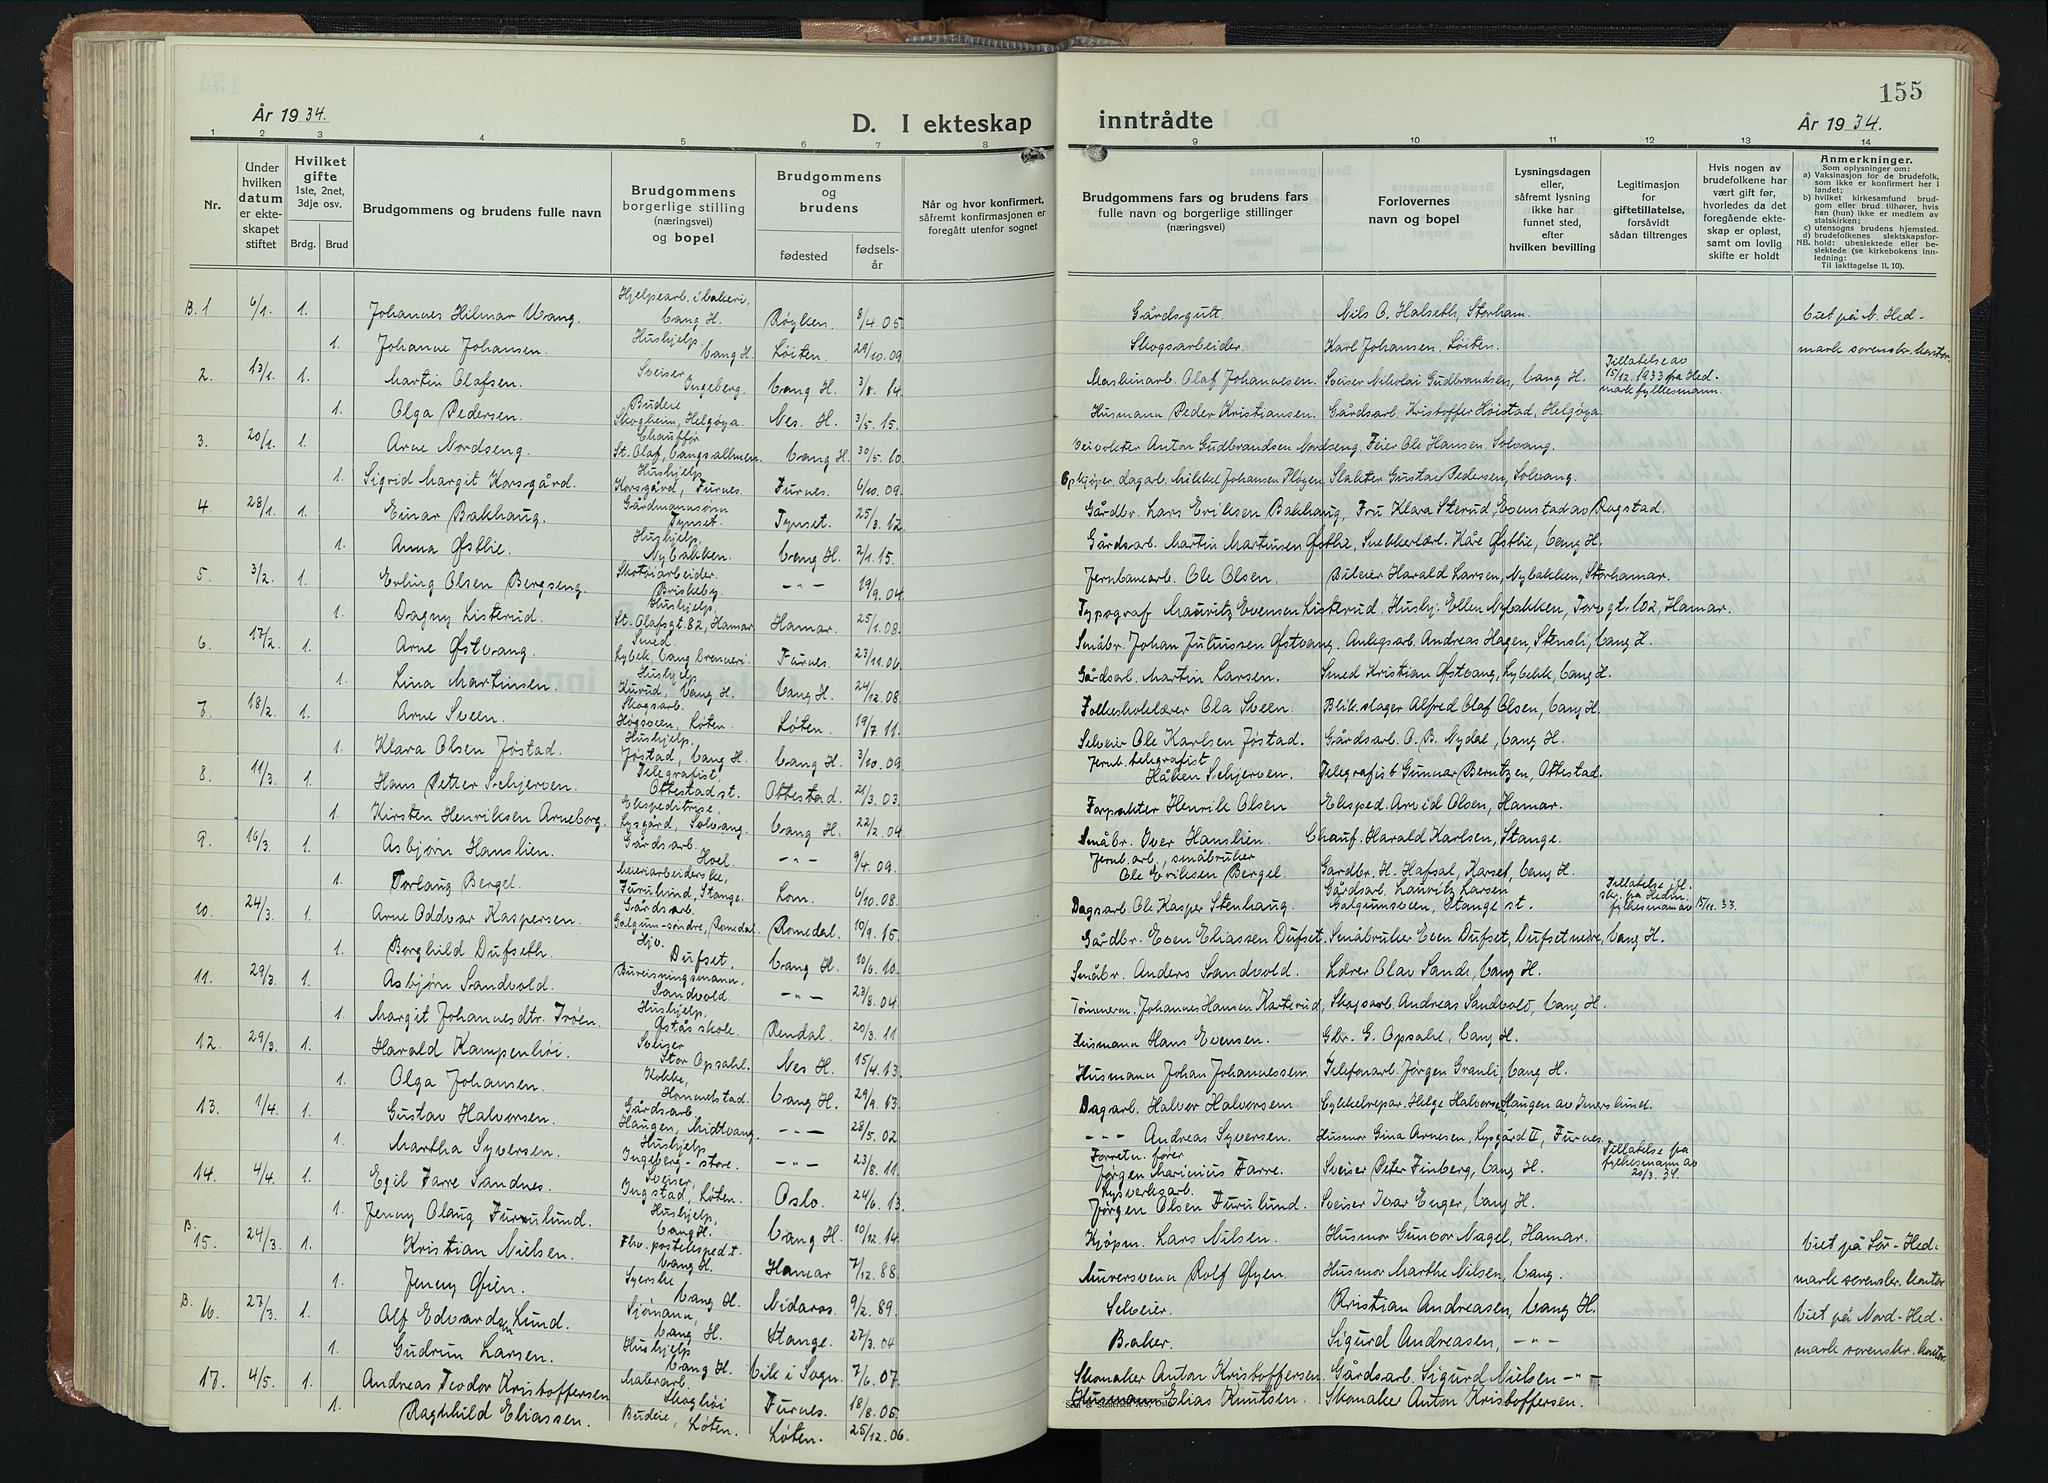 155
År 1934.
D. I ekteskap inntrådte
År 1934.
1 2 3 4 5 6 7 8 9 10 11 12 13 14
Nr.
Under hvilken datum er ekteskapet stiftet
Hvilket gifte 1ste, 2net, 3dje osv.
Brdg. Brud
Brudgommens og brudens fulle navn
Brudgommens borgerlige stilling (næringsvei) og bopel
Brudgommens og brudens
fødested
fødselsår
Når og hvor konfirmert, såfremt konfirmasjonen er foregått utenfor sognet
Brudgommens fars og brudens fars fulle navn og borgerlige stillinger (næringsvei)
Forlovernes navn og bopel
Lysningsdagen eller, såfremt lysning ikke har funnet sted, efter hvilken bevilling
Legitimasjon for giftetillatelse, forsåvidt sådan tiltrenges
Hvis nogen av brudefolkene har vært gift før, hvorledes da det foregående ekteskap er opløst, samt om lovlig skifte er holdt
Anmerkninger.
Som oplysninger om:
a) Vaksinasjon for de brudefolk, som ikke er konfirmert her i landet;
b) hvilket kirkesamfund brudgom eller brud tilhører, hvis han (hun) ikke er medlem av statskirken;
c) utensogns brudens hjemsted.
d) brudefolkenes slektskapsforhold: ubeslektede eller beslektede (se kirkebokens innledning:
NB.
Til iakttagelse II. 10).
B. 1 6/1. 1. Johannes Hilmar Vang. Hjelpearb. i bakeri. Vang H. Røyken. 8/4. 05. Gårdsgutt. Nils O. Halseth, Storham. Viet på N. Hed-
1. Johanne Johansen. Hushjelp, Vang H. Løiten. 29/10. 09. Skogsarbeider. Karl Johansen, Løiten. mark sorenskr. kontor.
2. 13/1. 1. Martin Olafsen. Sveiser Ingeberg. Vang H. 3/8. 14. Maskinarb. Olaf Johannesen. Sveiser Nikolai Gudbrandsen, Vang H. Tillatelse av 15/12. 1933 fra Hedmark fylkesmann.
1. Olga Pedersen. Budeie Skogheim, Helgøya. Nes. H. 3/5. 15. Husmann Peder Kristiansen. Gårdsarb. Kristoffer Høistad, Helgøya.
3. 20/1. 1. Arne Nordseng. Chauffør St. Olaf, Vangsallmen. Vang H. 30/5. 10. Veivokter Anton Gudbrandsen Nordseng. Feier Ole Hansen, Solvang.
1. Sigrid Margit Korsgård. Hushjelp Korsgård, Furnes. Furnes. 6/10. 09. Opkjøper, dagarb. Mikkel Johansen Pløgen. Slakter Gustav Pedersen, Solvang.
4. 28/1. 1. Einar Bakhaug. Gårdmannssønn Tynset. Tynset. 25/3. 12. Gårdbr. Lars Eriksen Bakhaug. Fru Klara Sterud, Evenstad av Rogstad.
1. Anna Østlie. Hushjelp, Nybakken. Vang H. 2/1. 15. Gårdsarb. Martin Martinsen Østlie. Snekkerlærl. Kåre Østlie, Vang H.
5. 3/2. 1. Erling Olsen Bergseng. Skotøiarbeider. Briskeby. -"- 19/9. 04. Jernbanearb. Ole Olsen. Bileier Harald Larsen, Nybakken, Storhamar.
1. Dagny Listerud. Hushjelp, St. Olafsgt. 82, Hamar. Hamar. 25/1. 08. Typograf Mauritz Evensen Listerud. Hushj: Ellen Nybakken, Torvgt. 102, Hamar.
6. 17/2. 1. Arne Østvang. Smed. Lybek, Vang brenneri. Furnes. 23/11. 06. Småbr. Johan Juliussen Østvang. Anlegsarb. Andreas Hagen, Stensli, Vang H.
1. Lina Martinsen. Hushjelp Kurud, Vang H. Vang H. 24/12. 08. Gårdsarb. Martin Larsen. Smed Kristian Østvang, Lybekk, Vang H.
7. 18/2. 1. Arne Sveen. Skogsarb. Høgsveen, Løten. Løten. 19/7. 11. Folkeskolelærer Ola Sveen. Blikslager Alfred Olaf Olsen, Vang H.
1. Klara Olsen Jøstad. Hushjelp, Jøstad, Vang H. Vang H. 3/10. 09. Selveier Ole Karlsen Jøstad. Gårdsarb. O. B. Nydal, Vang H.
8. 11/3. 1. Hans Petter Schjerven. Telegrafist. Ottestad st. Ottestad. 21/3. 03. Jernb. telegrafist Håken Schjerven. Telegrafist Gunnar Berntzen, Ottestad.
1. Kirsten Henriksen Arneberg. Ekspeditrise Lysgård, Solvang. Vang H. 22/2. 04. Forpakter Henrik Olsen. Eksped. Arvid Olsen, Hamar.
9. 16/3. 1. Asbjørn Hanslien. Gårdsarb. Hoel. -"- 9/4. 09. Småbr. Iver Hanslien. Chauf. Harald Karlsen, Stange.
1. Torlaug Bergel. Meieriarbeiderske, Furulund, Stange. Lom. 6/10. 08. Jernb. arb., småbruker Ole Eriksen Bergel. Gårdbr. H. Hafsal, Karset, Vang H.
10. 24/3. 1. Arne Oddvar Kaspersen. Gårdsarb. Galgum-søndre, Romedal. Romedal. 10/9. 15. Dagsarb. Ole Kasper Stenhaug. Gårdsarb. Lauritz Larsen Galgumsveen, Stange st. Tillatelse jfl. skr. fra Hedm. fylkesmann av 15/11. 33.
1. Borghild Dufseth. Hjv. Dufset. Vang H. 10/6. 10. Gårdbr. Even Eliassen Dufset. Småbruker Even Dufset, Dufset nedre, Vang H.
11. 29/3. 1. Asbjørn Sandvold. Bureisningsmann. Sandvold. -"- 23/8. 04. Småbr. Anders Sandvold. Lærer Olav Sande, Vang H.
1. Margit Johannesdtr. Trøen. Hushjelp, Østås skole. Rendal. 20/3. 11. Tømmerm. Johannes Hansen Karterud. Skogsarb. Andreas Sandvold, Vang H.
12. 29/3. 1. Harald Kampenhøi. Sveiser Stor Opsahl. Nes H. 15/4. 13. Husmann Hans Evensen. Gbr. G. Opsahl, Vang H.
1. Olga Johansen. Kokke, Hommelstad. Vang H. 29/9. 13. Husmann Johan Johannessen. Telefonarb. Jørgen Granli, Vang H.
13. 1/4. 1. Gustav Halversen. Gårdsarb. Haugen, Midtvang. -"- 28/5. 02. Dagarb. Halver Halversen. Sykkelrepar. Helge Halversen, Haugen av Imerslund.
1. Martha Syversen. Hushjelp Ingeberg-store. -"- 23/8. 11. -"- Andreas Syversen. Husmor Gina Arnesen, Lysgård II, Furnes.
14. 4/4. 1. Egil Farre Sandnes. Sveiser, Ingstad, Løten. Oslo. 24/6. 13. Forretn. fører Jørgen Marinius Farre. Sveiser Peter Finberg, Vang H. Tillatelse fra fylkesmann av 20/3. 34.
1. Jenny Olaug Furulund. Hushjelp, Vang H. Vang H. 10/12. 14. Lysverksarb. Jørgen Olsen Furulund. Sveiser Ivar Enger, Vang H.
B. 15. 24/3. 1. Kristian Nielsen. Fhv. postekspedt. Vang H. Hamar 7/12. 88. Kjøpm. Lars Nilsen. Husmor Gunvor Nagel, Hamar. Viet på Sør-Hed-
1. Jenny Øien. Syerske Vang H. Nidaros. 9/2. 89. Murersvenn Rolf Øyen. Husmor Marthe Nilsen, Vang. mark sorenskr. kontor
B. 16. 27/3. 1. Alf Edvardsen Lund. Sjømann, Vang H. Stange. 27/3. 04 Selveier. Kristian Andreasen, Vang H. Viet på Nord-Hed-
1. Gudrun Larsen. Hushjelp Vang H. Vik i Sogn. 7/6. 07. Baker. Sigurd Andreasen, -"- mark sorenskr. kontor.
17. 4/5. 1. Andreas Teodor Kristoffersen Malerarb. Skoghøi Furnes. 18/8. 05. Skomaker Anton Kristoffersen. Gårdsarb. Sigurd Nielsen -"-
1. Ragnhild Eliassen. Budeie, Løten. Løten. 25/12. 06. Husmann Elias Knutsen. Skomaker Anton Kristoffersen.